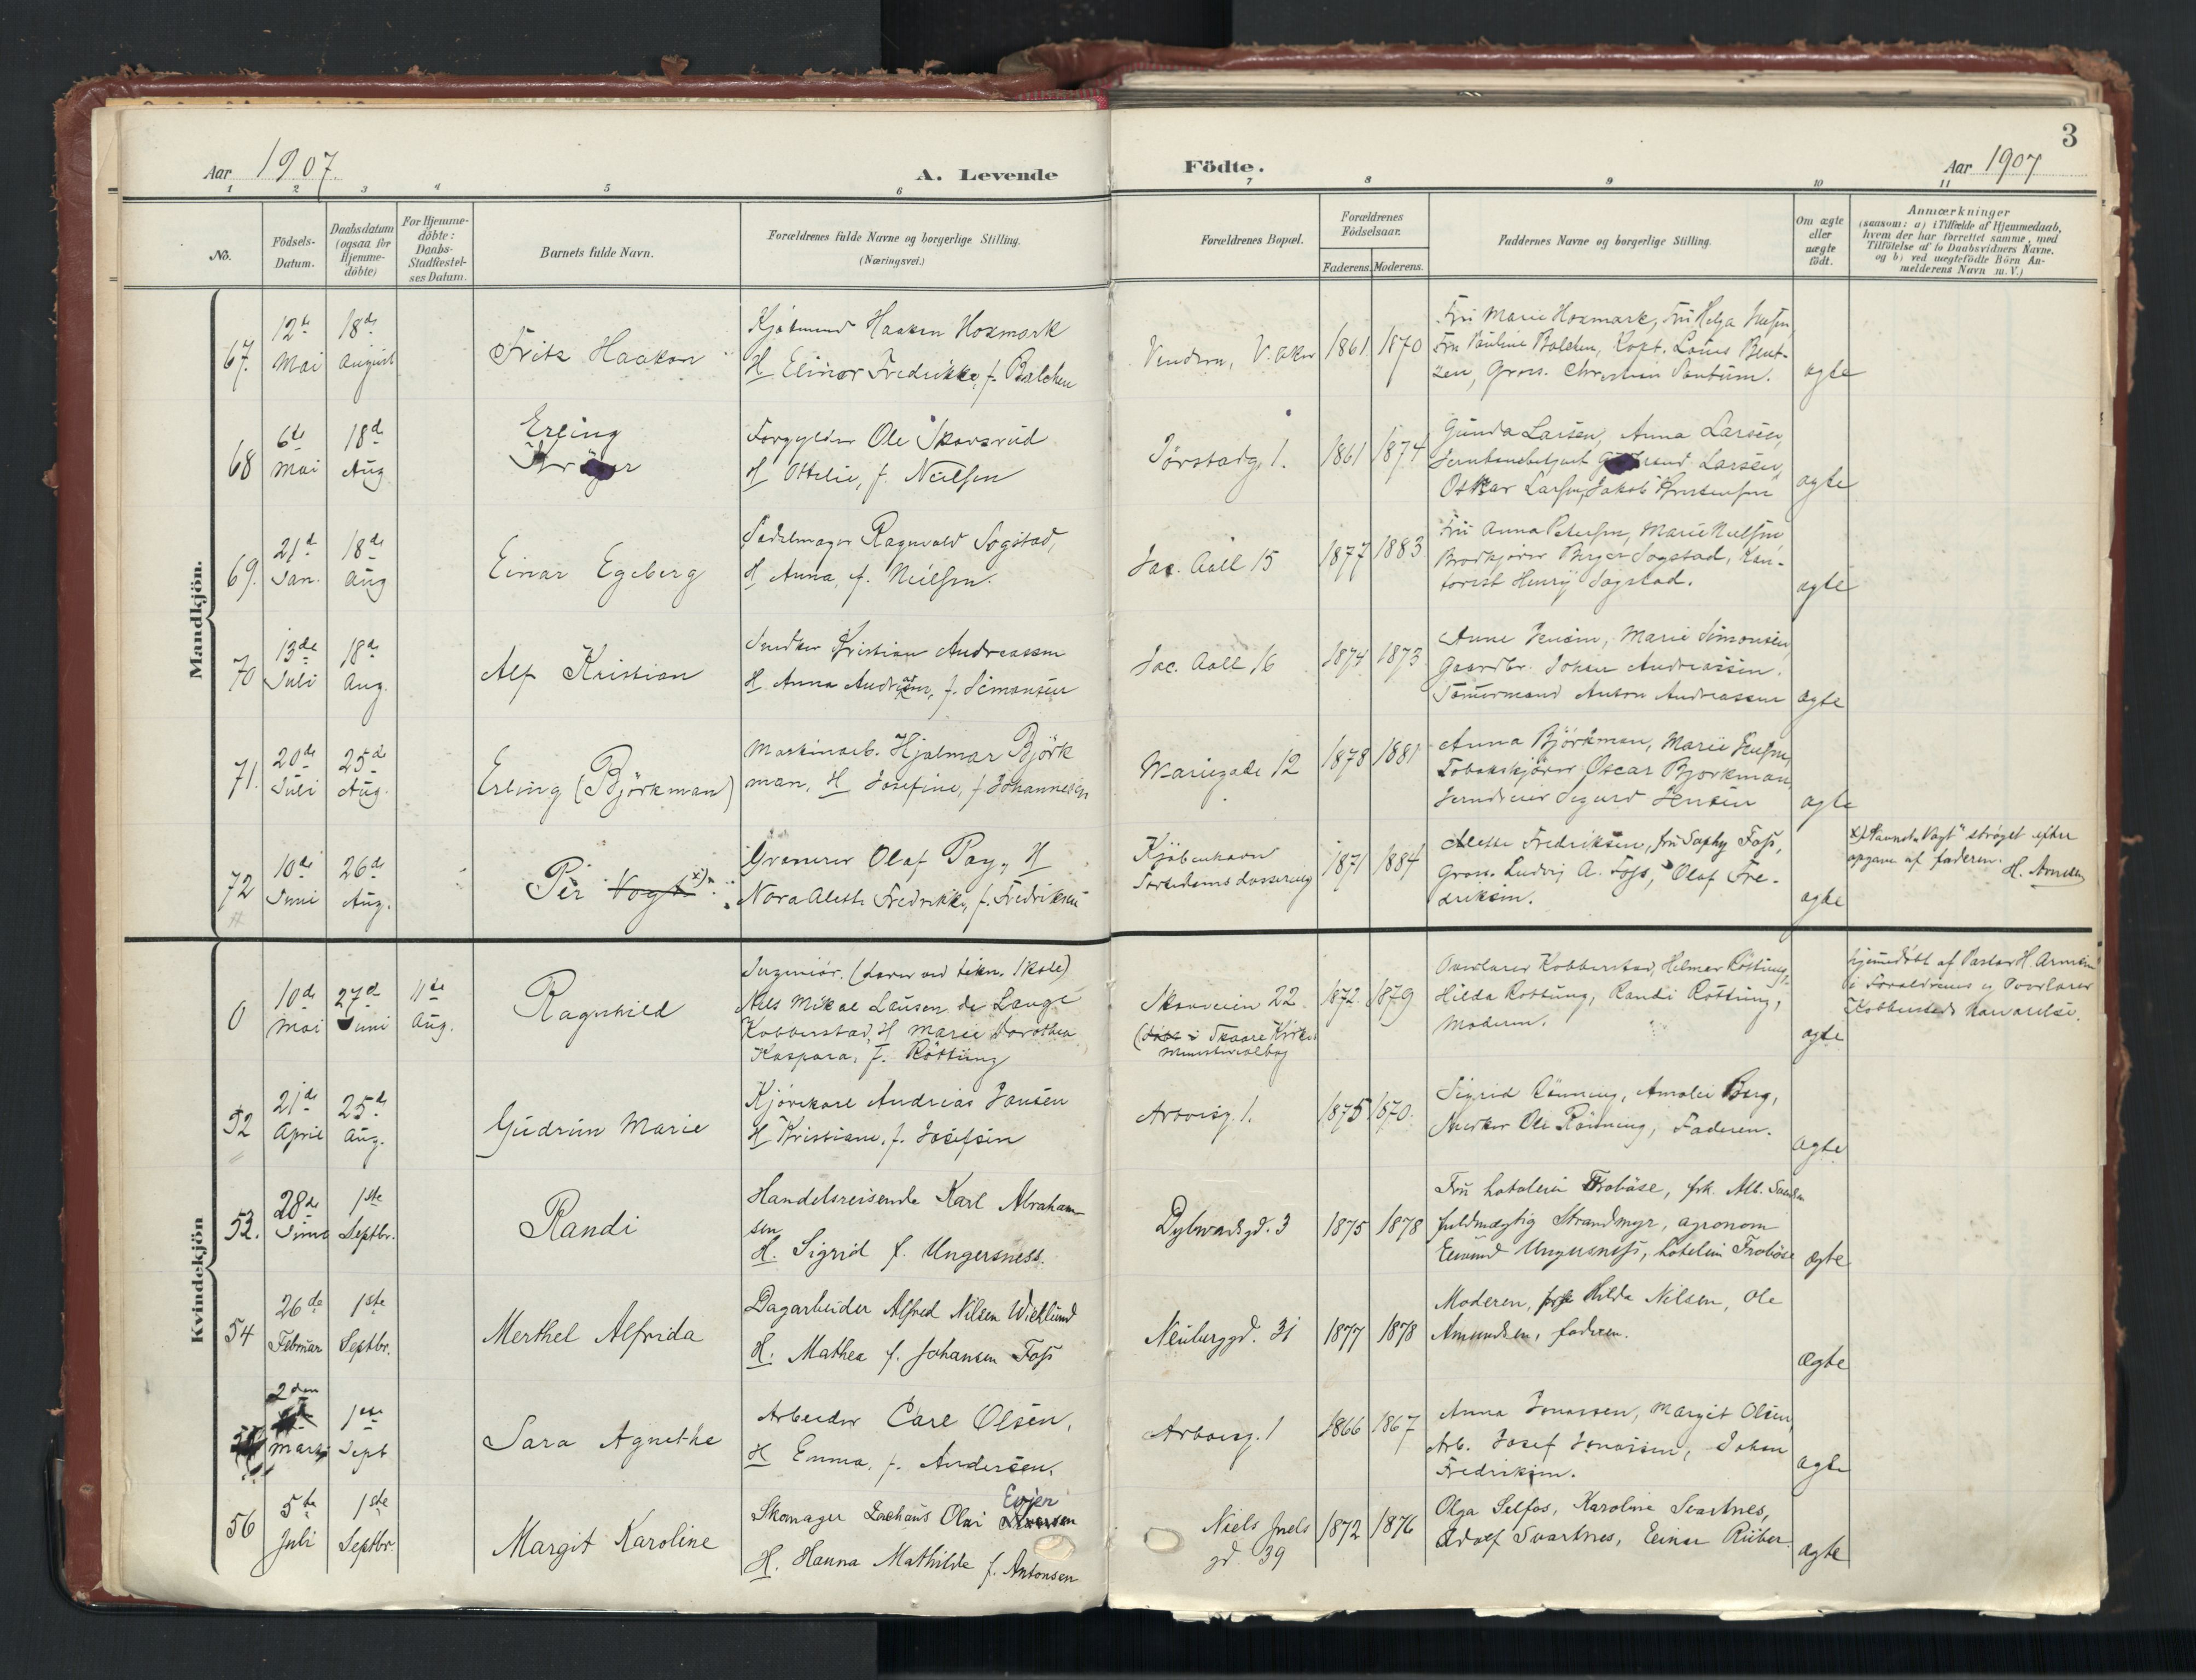 3
Aar 1907.
A. Levende
Födte.
Aar 1907
1 2 3 4 5 6 7 8 9 10 11
No.
Födsels-
Datum.
Daabsdatum
(ogsaa for
Hjemme-
döbte)
For Hjemme-
döbte:
Daabs-
Stadfæstel-
ses Datum.
Barnets fulde Navn.
Forældrenes fulde Navne og borgerlige Stilling.
(Næringsvei.)
Forældrenes Bopæl.
Forældrenes
Födselsaar.
Faderens. Moderens.
Faddernes Navne og borgerlige Stilling.
Om ægte
eller
uægte
födt.
Anmærkninger
(saasom: a) i Tilfælde af Hjemmedaab,
hvem der har forrettet samme, med
Tilföielse af to Daabsvidners Navne,
og b) ved uægtefödte Börn An-
melderens Navn m. V.)
Mandkjön.
67.
12te
Mai
18de
August
Fritz Haakon
Haaken Hoxmark
H Elinor Fredrikke, f. Balchen
Vindern, V. Aker
1861 1870
Fru Marie Hoxmark, Fru Helga
Fru Pauline Balchen, Kapt. Louis Bent-
zen, Gross. Christian
ægte
68
6te
Mai
18de
Aug
Erling
Ole Skarsrud
H Ottilie, f. Neilsen
1.
1861 1874
Gunda Larsen, Anna Larsen,
Larsen,
Oskar Larsen, Jakob
ægte
69.
21de
Jan.
18de
Aug
Einar Egeberg
Sadelmager Ragnvald Sogstad,
H Anna, f. Neilsen.
Jac. Aall 15
1877 1883
Fru Anna Petersen, Marie Neilsen
Brødkjører Birger Sogstad, Kon-
torist Henry Sogstad.
ægte
70
13de
Juli
18de
Aug.
Alf Kristian
Snedker Kristian Andreassen
H. Anna Andreassen, f. Simonsen
Jac. Aall 16
1874 1873
Anne Jensen, Marie Simonsen,
Gaardbr. Johan Andreassen.
Tömmermand Anton Andreassen
ægte
71.
20de
Juli
25de
Aug.
Erling (Björkman)
Maskinarb. Hjalmar Björk
man, H Josefine, f. Johannesen
Mariegade 12
1878 1881
Anna Björkman, Marie Jensen,
Tobakskjører Oscar Bjorkman
Sigurd Jensen
ægte
72
10de
Juni
26de
Aug.
Per Vogt x)
Graverer Olaf Pay, H
Nora Alette Fredrikke, f. Fredriksen
Kjöbenhavn
Sortedams dossering
1871 1884
Alette Fredriksen, fru Saphy Foss,
Gross. Ludvig A. Foss, Olaf Fre-
driksen.
ægte
x) Navnet "Vogt" strøget efter
opgave af faderen.
H.
Kvindekjön
0
10de
Mai
27de
Juni
11te
Aug.
Ragnhild
Ingeniör. (Lærer ved tekn. Skole)
Nils Mikal Lausen de Lange
Kobberstad, H Marie Dorothea
Kaspara, f. Röttüng
Skovveien 22
(döbt i Skaare Kirkes
Ministerialbog
1872. 1879
Overlærer Kobberstad, Helmer Röttung,
Hilda Rottung, Randi Röttung,
Moderen.
ægte
hjemmedöbt af Pastor H.
i Forældrenes og Overlærer
Kobberstads nærværelse.
52
21de
April
25de
Aug.
Gudrun Marie
Kjørekarl Andreas Jansen
H Kristiane, f. Josefsen
Arboesg. 1.
1875 1870.
Sigrid Rönning, Amalie Berg,
Snedker Ole Rönning, Faderen.
ægte
53.
28de
Juni
1ste
Septbr.
Randi
Handelsreisende Karl Abraham-
sen
H. Sigrid f. Ungersness.
Dybwadsgd. 3
1875 1878
Fru hoteleier Frobøse, frk. Alb.
fuldmægtig Strandmyr, agronom
Ungersness, hoteleier Frobøse
ægte
54
26de
Februar
1ste
Septbr.
Merthel Alfrida
Dagarbeider Alfred Nilsen Wicklund
H. Mathea f. Johansen Foss
Neuberggd. 31
1877 1878
Moderen, frk Hilda Nilsen, Ole
Amundsen, faderen.
Ægte
2den
Marts
1ste
Sept
Sara Agnethe
Arbeider Carl Olsen,
H Emma, f. Andersen.
Arboesg. 1
1866 1867
Anna Jonassen, Margit Olsen,
Arb. Josef Jonassen, Johan
Fredriksen.
ægte
56
5te
Juli
1ste
Septbr.
Margit Karoline
Evjen
Skomager Zachæus Olai
H. Hanna Mathilde f. Antonsen
Niels Juels
gd. 39
1872 1876
Olga Selfos, Karoline Svartnes,
Adolf Svartnes, Einar
ægte